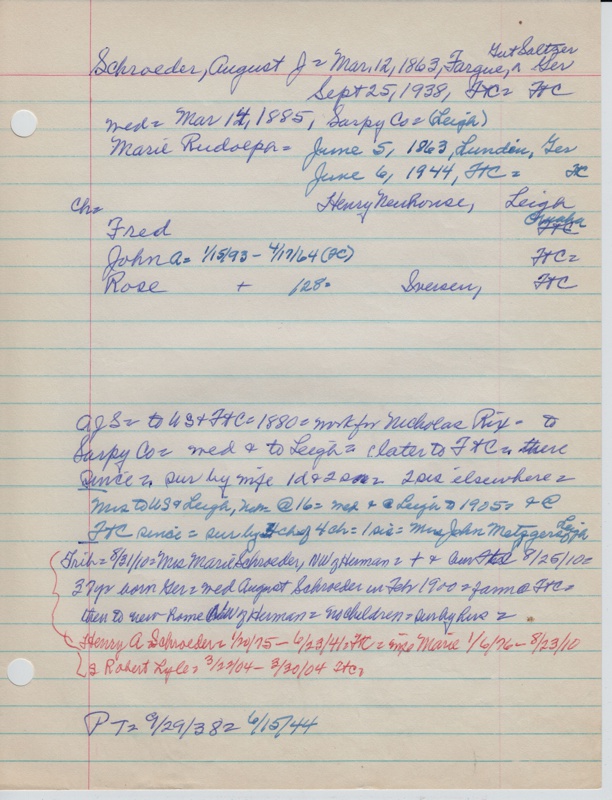 Schroeder, August J = Mar, 12, 1863, Fargue, ^ Gut Saltzer Ger
Sept 25, 1938, FtC = FtC
wed = Mar 14, 1885, Sarpy Co = (Leigh)
Marie Rudolph = June 5, 1863, Lunden, Ger
June 6, 1944, FtC = FC
Ch = Henry Neuhouse, Leigh
Fred Omaha FtC
John A = 1/15/93 - 4/17/64 (FC) FtC =
Rose + /28 = Iversen, FtC
AJS = to US & FtC = 1880 = work for Nicholas Rix = to
Sarpy Co = wed & to Leigh = later to FtC = there
since = sur by wife 1d & 2 son = 2 sis elsewhere =
Mrs to US & Leigh, Neb @ 16 = wed & @ Leigh to 1905 = & @
FtC since = sur by 3 ch of 4 ch = 1 sis = Mrs John Metzger Leigh
Trib = 8/31/10 = Mrs Marie Schroeder, NW of Human = + & bur 8/25/10 =
37 yr born Ger = wed August Schroeder in Feb 1900 = farm @ FtC =
then to new home NW of Herman = no children = sur by hus =
Henry A Schroeder = 1/20/75 - 6/23/41 = FtC = wife Marie 1/6/76 - 8/23/10
Robert Lyle = 3/22/04 - 3/30/04 FtC =
PT = 9/29/38 = 6/15/44